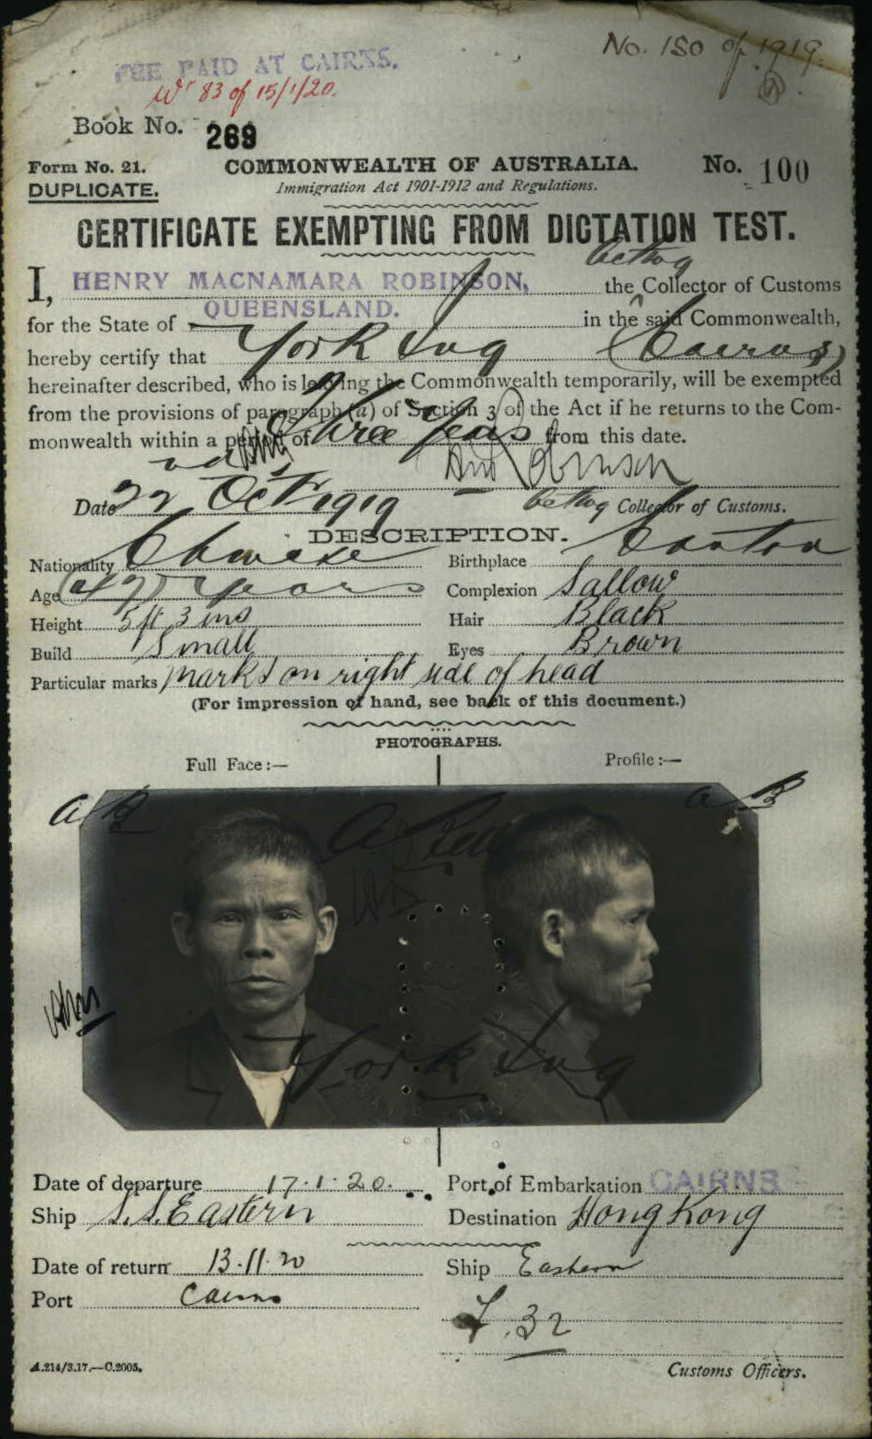 No. 150 of 1919.
FEE PAID AT CAIRNS.
No 83 of 15/1/20.
Book No. 269
Form No. 21. COMMONWEALTH OF AUSTRALIA. No. 100
DUPLICATE. Immigration Act 1901-1912 and Regulations.
CERTIFICATE EXEMPTING FROM DICTATION TEST.
acting
I, HENRY MACNAMARA ROBINSON, the Collector of Customs
for the State of QUEENSLAND. in the said Commonwealth,
hereby certify that York Sug (Cairns)
hereinafter described, who is leaving the Commonwealth temporarily, will be exempted
from the provisions of paragraph (a) of Section 3 of the Act if he returns to the Com-
monwealth within a period of Three Years from this date.
HM Robinson
Date 22nd Octr 1919 acting Collector of Customs.
DESCRIPTION.
Nationality Chinese Birthplace Canton
Age (42) years Complexion Sallow
Height 5ft 3 ins Hair Black
Build Small Eyes Brown
Particular marks marks on right side of head
(For impression of hand, see back of this document.)
PHOTOGRAPHS.
Full Face:— Profile:—
York Sug
Date of departure 17.1.20. Port of Embarkation CAIRNS
Ship S.S. Eastern Destination Hong Kong
Date of return 13.11.20 Ship Eastern
Port Cairns
F.32
A.214/3.17.—C.2005. Customs Officers.